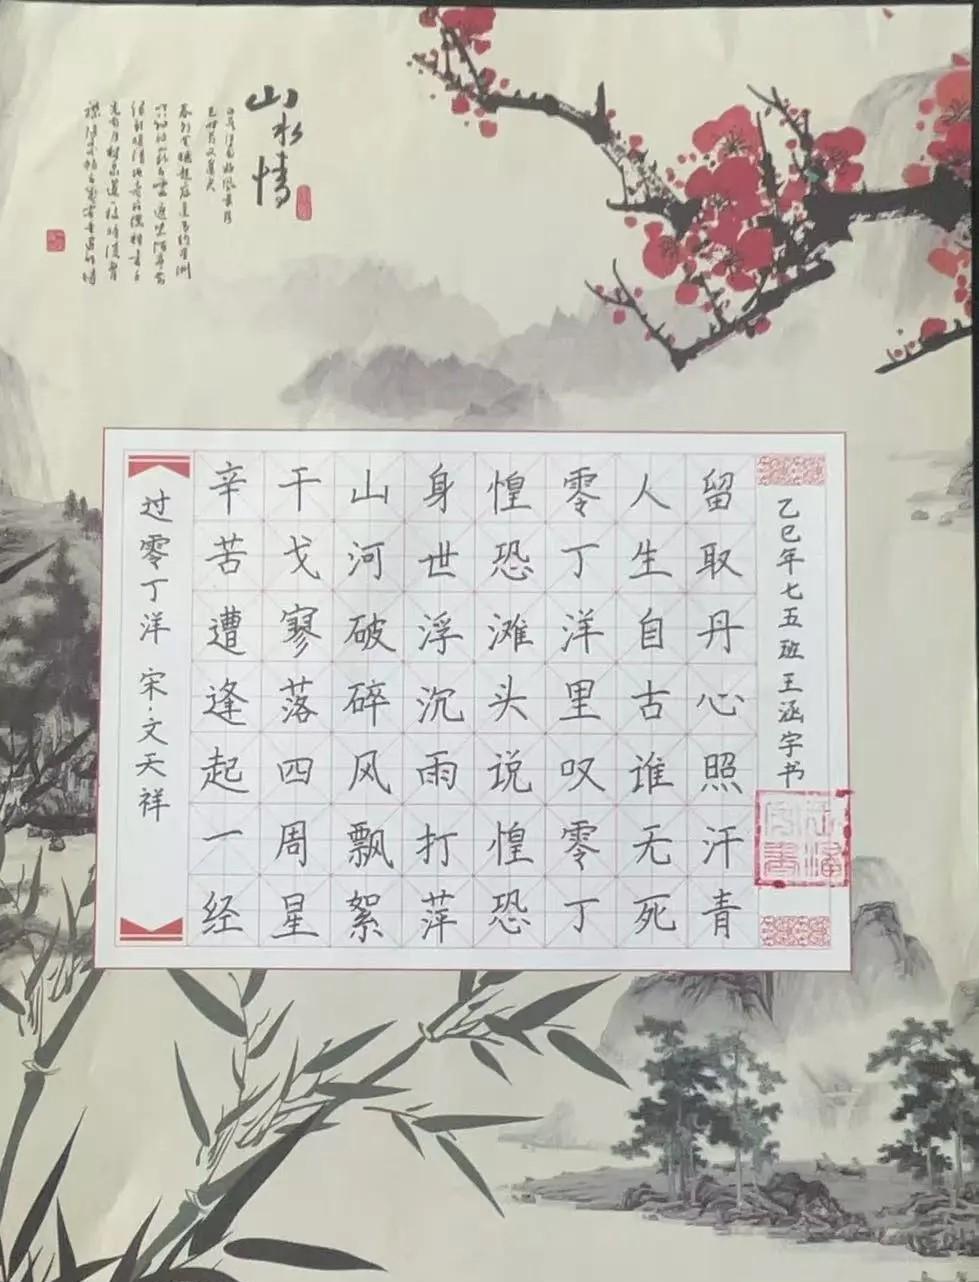 山水情
过零丁洋 宋·文天祥
辛苦遭逢起一经
干戈寥落四周星
山河破碎风飘絮
身世浮沉雨打萍
惶恐滩头说惶恐
零丁洋里叹零丁
人生自古谁无死
留取丹心照汗青
乙巳年七五班王涵宇书